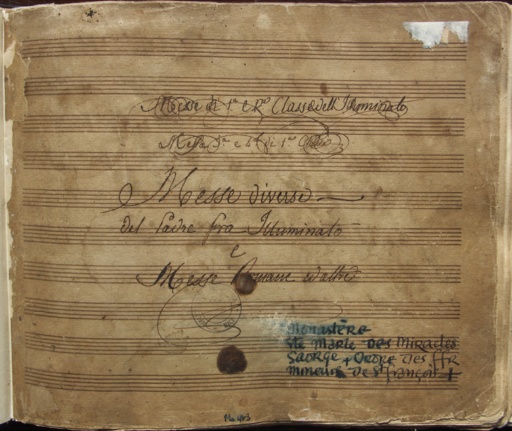 Messe di 1.a e 2.a Classe dell Illuminato
Messa
Messe diverse
del Padre fra Illuminato
e
Messe Romane ed altre
Monastère
Ste Marie des Miracles
Saorge + Ordre des FFR
mineurs de St françois +